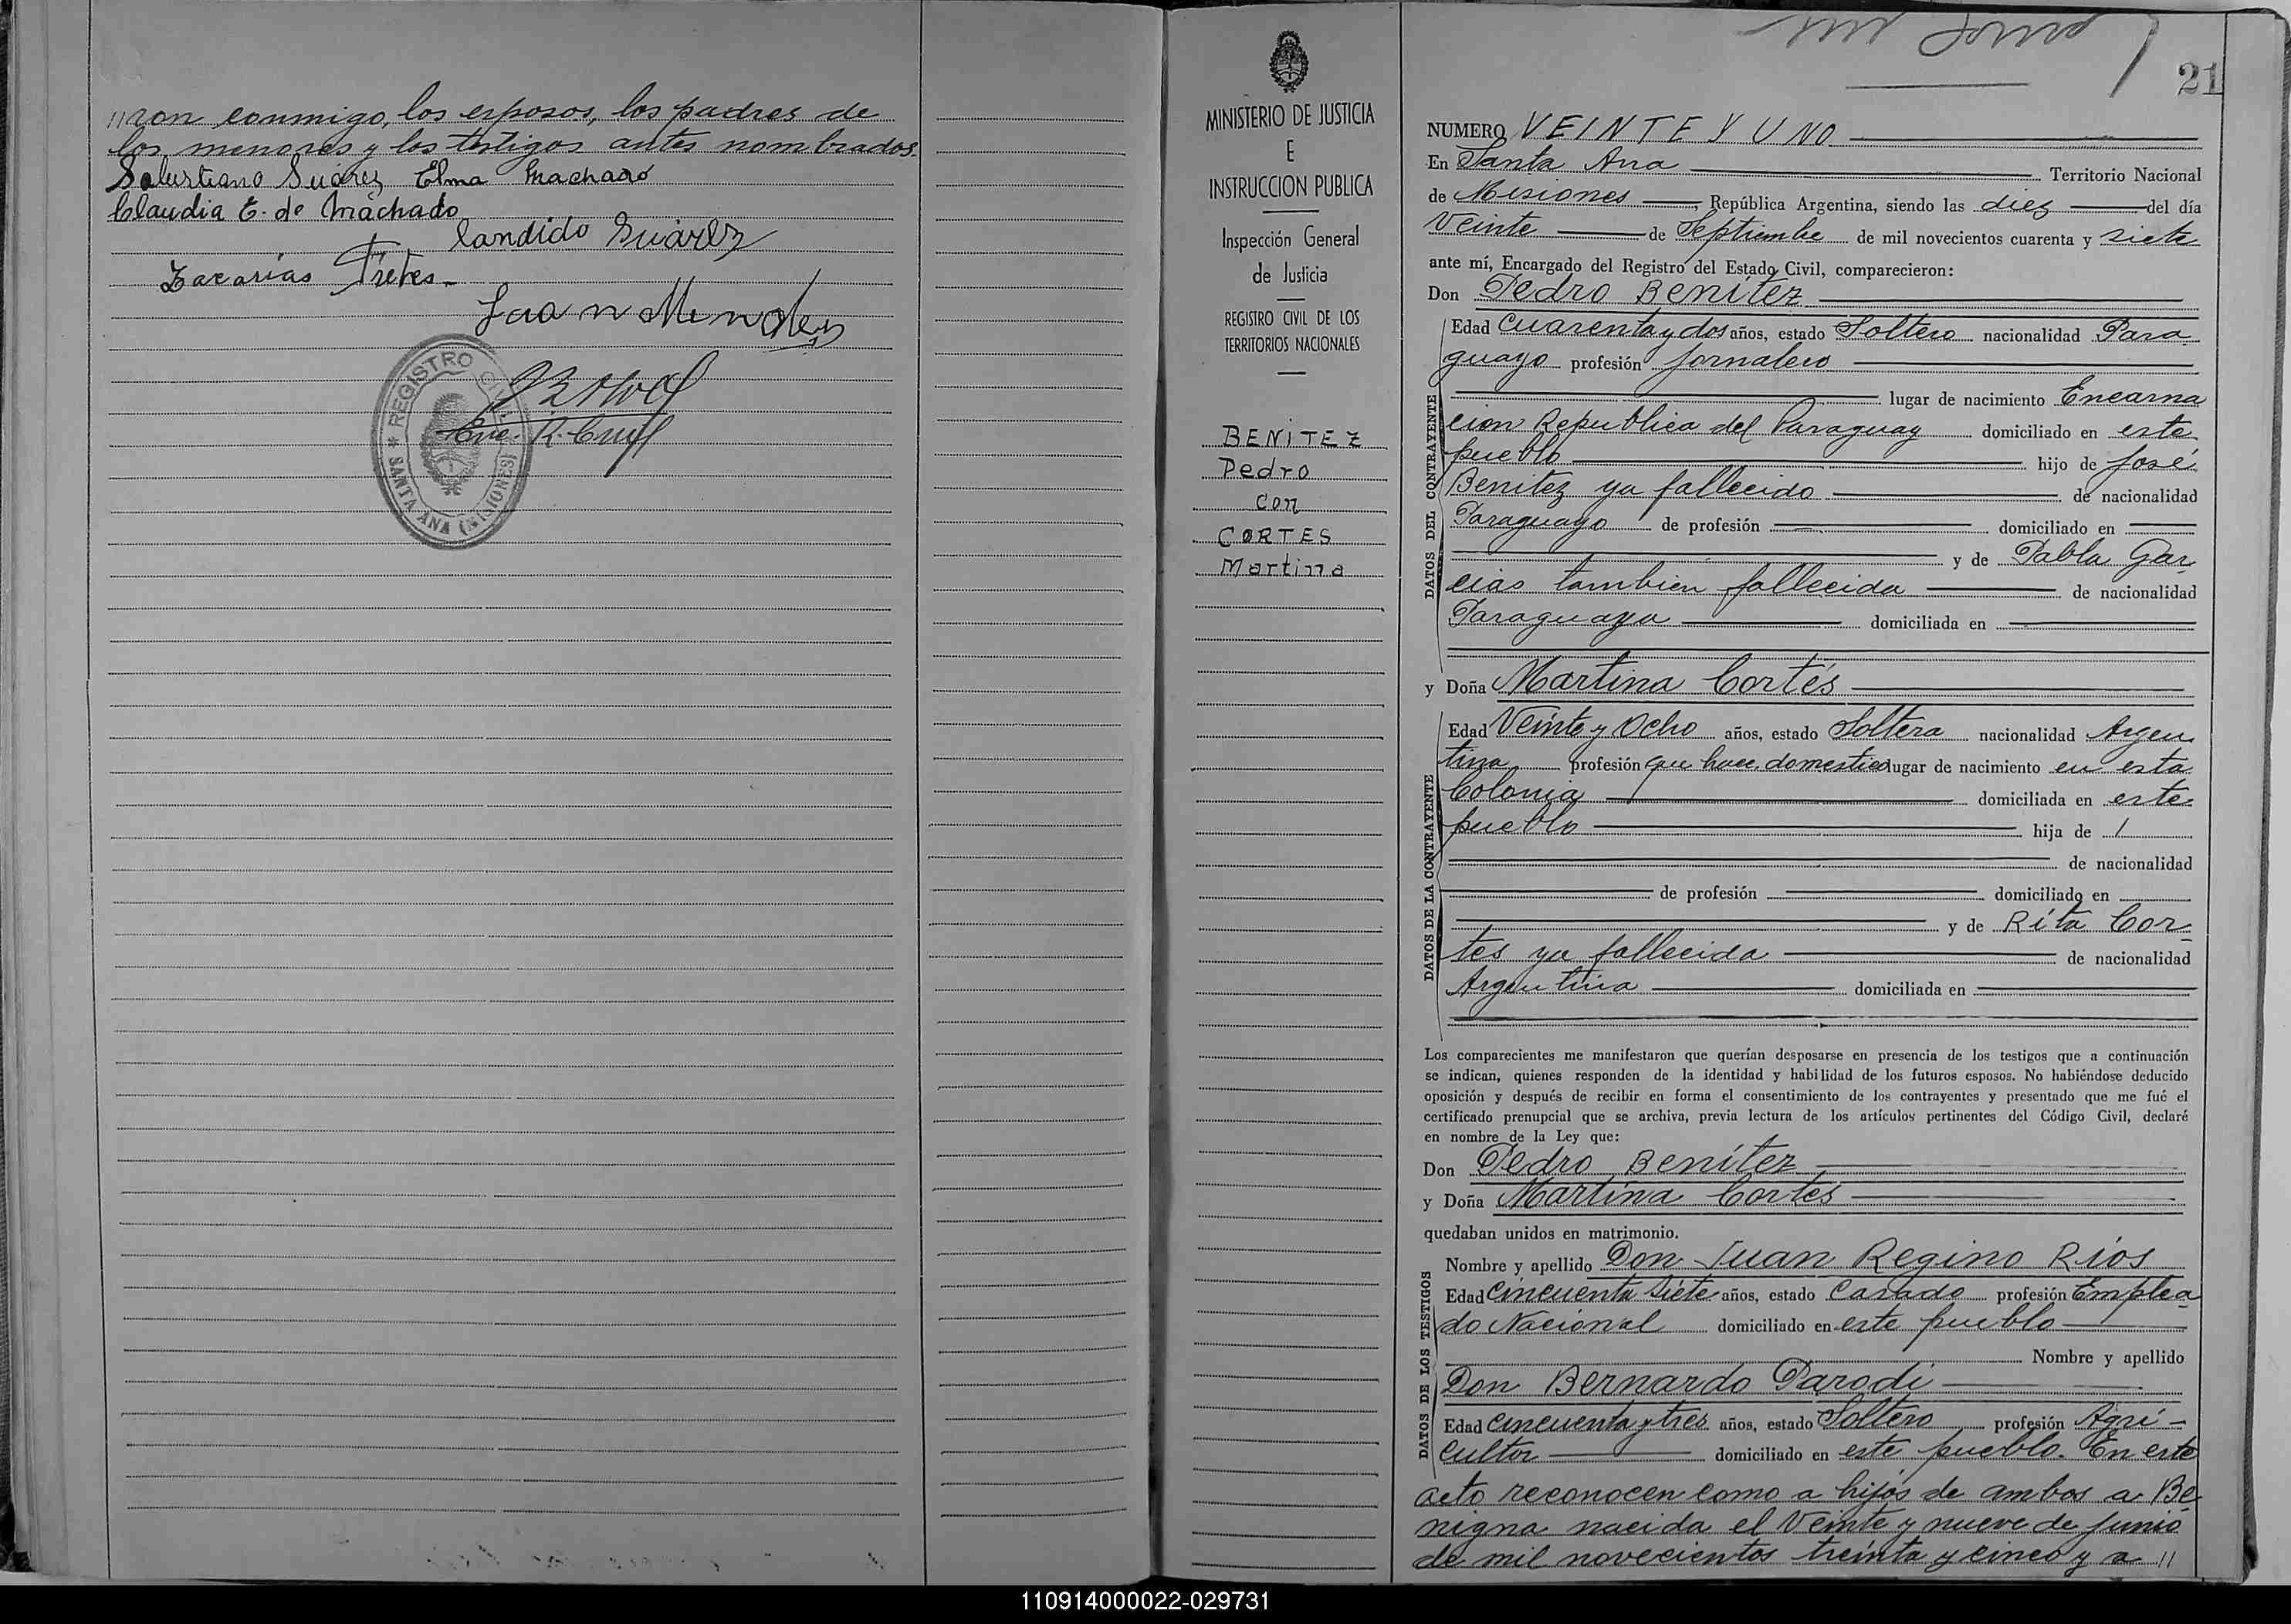 //ron conmigo, los esposos, los padres de
los menores y los testigos antes nombrados.
Salustiano Suárez Elma Machado
Claudia E. de Machado
Candido Suárez
Zacarías Fretes.
Juan Mendez
Enc. R. Civil
REGISTRO CIVIL
* SANTA ANA (MISIONES)
MINISTERIO DE JUSTICIA
E
INSTRUCCION PUBLICA
Inspección General
de Justicia
REGISTRO CIVIL DE LOS
TERRITORIOS NACIONALES
BENITEZ
Pedro
con
CORTES
Martina
21
NUMERO VEINTE Y UNO
En Santa Ana Territorio Nacional
de Misiones, República Argentina, siendo las diez del día
Veinte de Septiembre de mil novecientos cuarenta y siete
ante mí, Encargado del Registro del Estado Civil, comparecieron:
Don Pedro Benítez
DATOS DEL CONTRAYENTE
Edad Cuarenta y dos años, estado Soltero nacionalidad Para
guayo profesión Jornalero
lugar de nacimiento Encarna
cion Republica del Paraguay domiciliado en este
pueblo hijo de José
Benitez ya fallecido de nacionalidad
Paraguayo de profesión domiciliado en
y de Pabla Gar
cias tambien fallecida de nacionalidad
Paraguaya domiciliada en
y Doña Martina Cortés
DATOS DE LA CONTRAYENTE
Edad Veinte y Ocho años, estado Soltera nacionalidad Argen
tina profesión que hace. domestico lugar de nacimiento en esta
Colonia domiciliada en este
pueblo hija de /
de nacionalidad
de profesión domiciliado en
y de Rita Cor
tes ya fallecida de nacionalidad
Argentina domiciliada en
Los comparecientes me manifestaron que querían desposarse en presencia de los testigos que a continuación
se indican, quienes responden de la identidad y habilidad de los futuros esposos. No habiéndose deducido
oposición y después de recibir en forma el consentimiento de los contrayentes y presentado que me fué el
certificado prenupcial que se archiva, previa lectura de los artículos pertinentes del Código Civil, declaré
en nombre de la Ley que:
Don Pedro Benítez
y Doña Martina Cortés
quedaban unidos en matrimonio.
DATOS DE LOS TESTIGOS
Nombre y apellido Don Juan Regino Ríos
Edad Cincuenta siete años, estado Casado profesión Emplea
do Nacional domiciliado en este pueblo
Nombre y apellido
Don Bernardo Parodi
Edad Cincuenta y tres años, estado Soltero profesión Agri-
cultor domiciliado en este pueblo. En este
acto reconocen como a hijos de ambos a Be
nigna nacida el Veinte y nueve de Junio
de mil novecientos treinta y cinco y a //
110914000022-029731